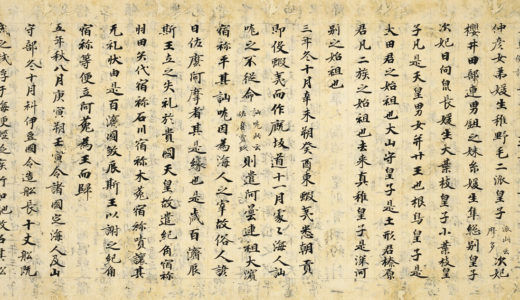 仲彦女弟媛生稚野毛二派皇子派此云摩多次妃
櫻井田部連男鉏之妹糸媛生隼総別皇子
次妃日向泉長媛生大葉枝皇子小葉枝皇
子凡是天皇男女并廿王也根鳥皇子是
大田君之始祖也大山守皇子是土形君榛原
君凡二族之始祖也去来真稚皇子是深河
別之始祖也
三年冬十月辛未朔癸酉東蝦夷悉朝貢
即役蝦夷而作厩坂道十一月處々海人訕
哤之不従命訕哤此云佐麼賣玖則遣阿曇連祖大濱
宿祢平其訕哤因為海人之宰故俗人諺
曰佐麼阿摩者其是縁也是歳百濟辰
斯王立之失礼於貴國天皇故遣紀角宿祢
羽田矢代宿祢石川宿祢木菟宿祢嘖讓其
无礼状由是百濟國殺辰斯王以謝之紀角
宿祢等便立阿花為王而歸
五年秋八月庚寅朔壬寅令諸國定海人及山
守部冬十月科伊豆國令造船長十丈船既
成之試浮于海便軽泛疾行如馳故名其船